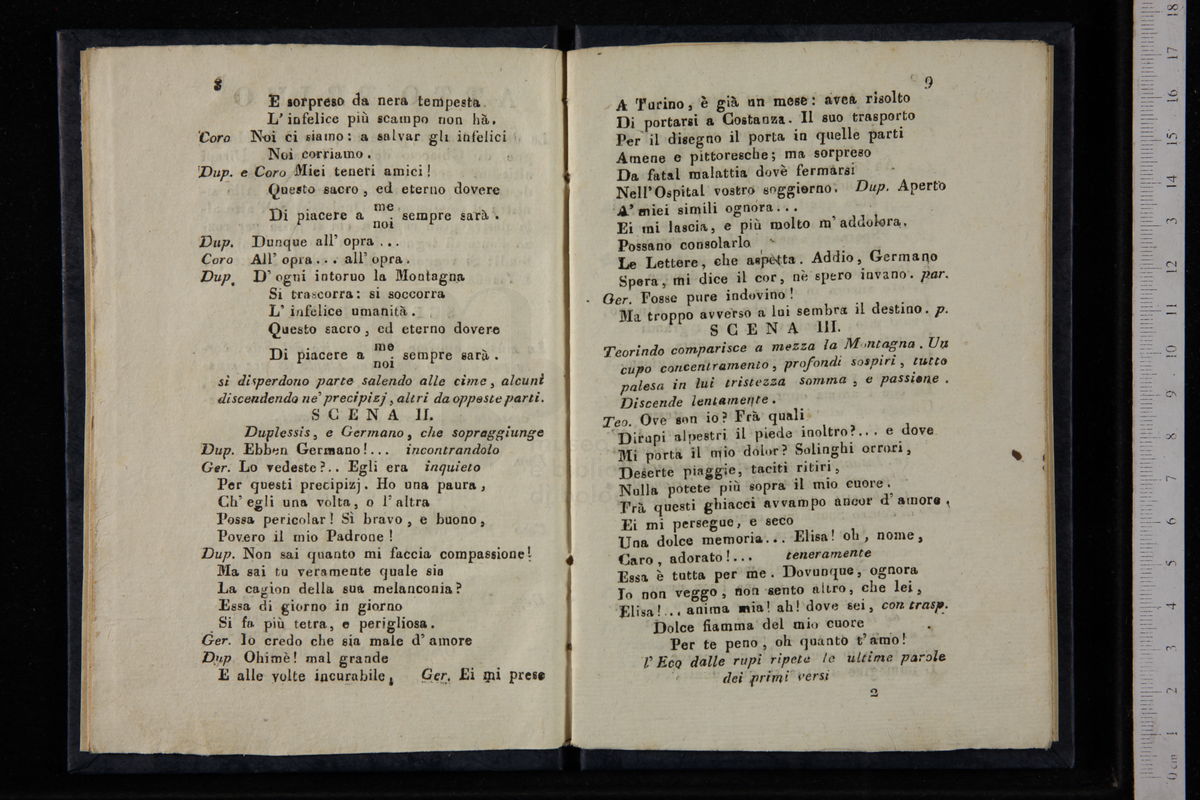 8
E sorpreso da nera tempesta
L' infelice più scampo non hà.
Coro Noi ci siamo: a salvar gli infelici
Noi corriamo.
Dup. e Coro Miei teneri amici!
Questo sacro, ed eterno dovere
Di piacere a me noi sempre sarà.
Dup. Dunque all' opra...
Coro All' opra... all' opra.
Dup. D' ogni intoruo la Montagna
Si trascorra: si soccorra
L' infelice umanità.
Questo sacro, ed eterno dovere
Di piacere a me noi sempre sarà.
si disperdono parte salendo alle cime, alcuni
discendendo ne' precipizj, altri da opposte parti.
SCENA II.
Duplessis, e Germano, che sopraggiunge
Dup. Ebben Germano!... incontrandolo
Ger. Lo vedeste?.. Egli era inquieto
Per questi precipizj. Ho una paura,
Ch' egli una volta, o l' altra
Possa pericolar! Sì bravo, e buono,
Povero il mio Padrone!
Dup. Non sai quanto mi faccia compassione!
Ma sai tu veramente quale sia
La cagion della sua melanconia?
Essa di giorno in giorno
Si fa più tetra, e perigliosa.
Ger. Io credo che sia male d' amore
Dup Ohimè! mal grande
E alle volte incurabile. Ger. Ei mi prese
9
A Turino, è già un mese: avea risolto
Di portarsi a Costanza. Il suo trasporto
Per il disegno il porta in quelle parti
Amene e pittoresche; ma sorpreso
Da fatal malattia dovè fermarsi
Nell' Ospital vostro soggiorno. Dup. Aperto
A' miei simili ognora...
Ei mi lascia, e più molto m' addolora.
Possano consolarlo
Le Lettere, che aspetta. Addio, Germano
Spera, mi dice il cor, nè spero invano. par.
Ger. Fosse pure indovino!
Ma troppo avverso a lui sembra il destino. p.
SCENA III.
Teorindo comparisce a mezza la Montagna. Un
cupo concentramento, profondi sospiri, tutto
palesa in lui tristezza somma, e passione.
Discende lentamente.
Teo. Ove son io? Frà quali
Dirupi alpestri il piede inoltro?... e dove
Mi porta il mio dolor? Solinghi orrori,
Deserte piaggie, taciti ritiri,
Nulla potete più sopra il mio cuore.
Frà questi ghiacci avvampo ancor d' amore,
Ei mi persegue, e seco
Una dolce memoria... Elisa! oh, nome,
Caro, adorato!... teneramente
Essa è tutta per me. Dovunque, ognora
Io non veggo, non sento altro, che lei,
Elisa!... anima mia! ah! dove sei, con trasp.
Dolce fiamma del mio cuore
Per te peno, oh quanto t' amo!
l' Eco dalle rupi ripete le ultime parole
dei primi versi
2